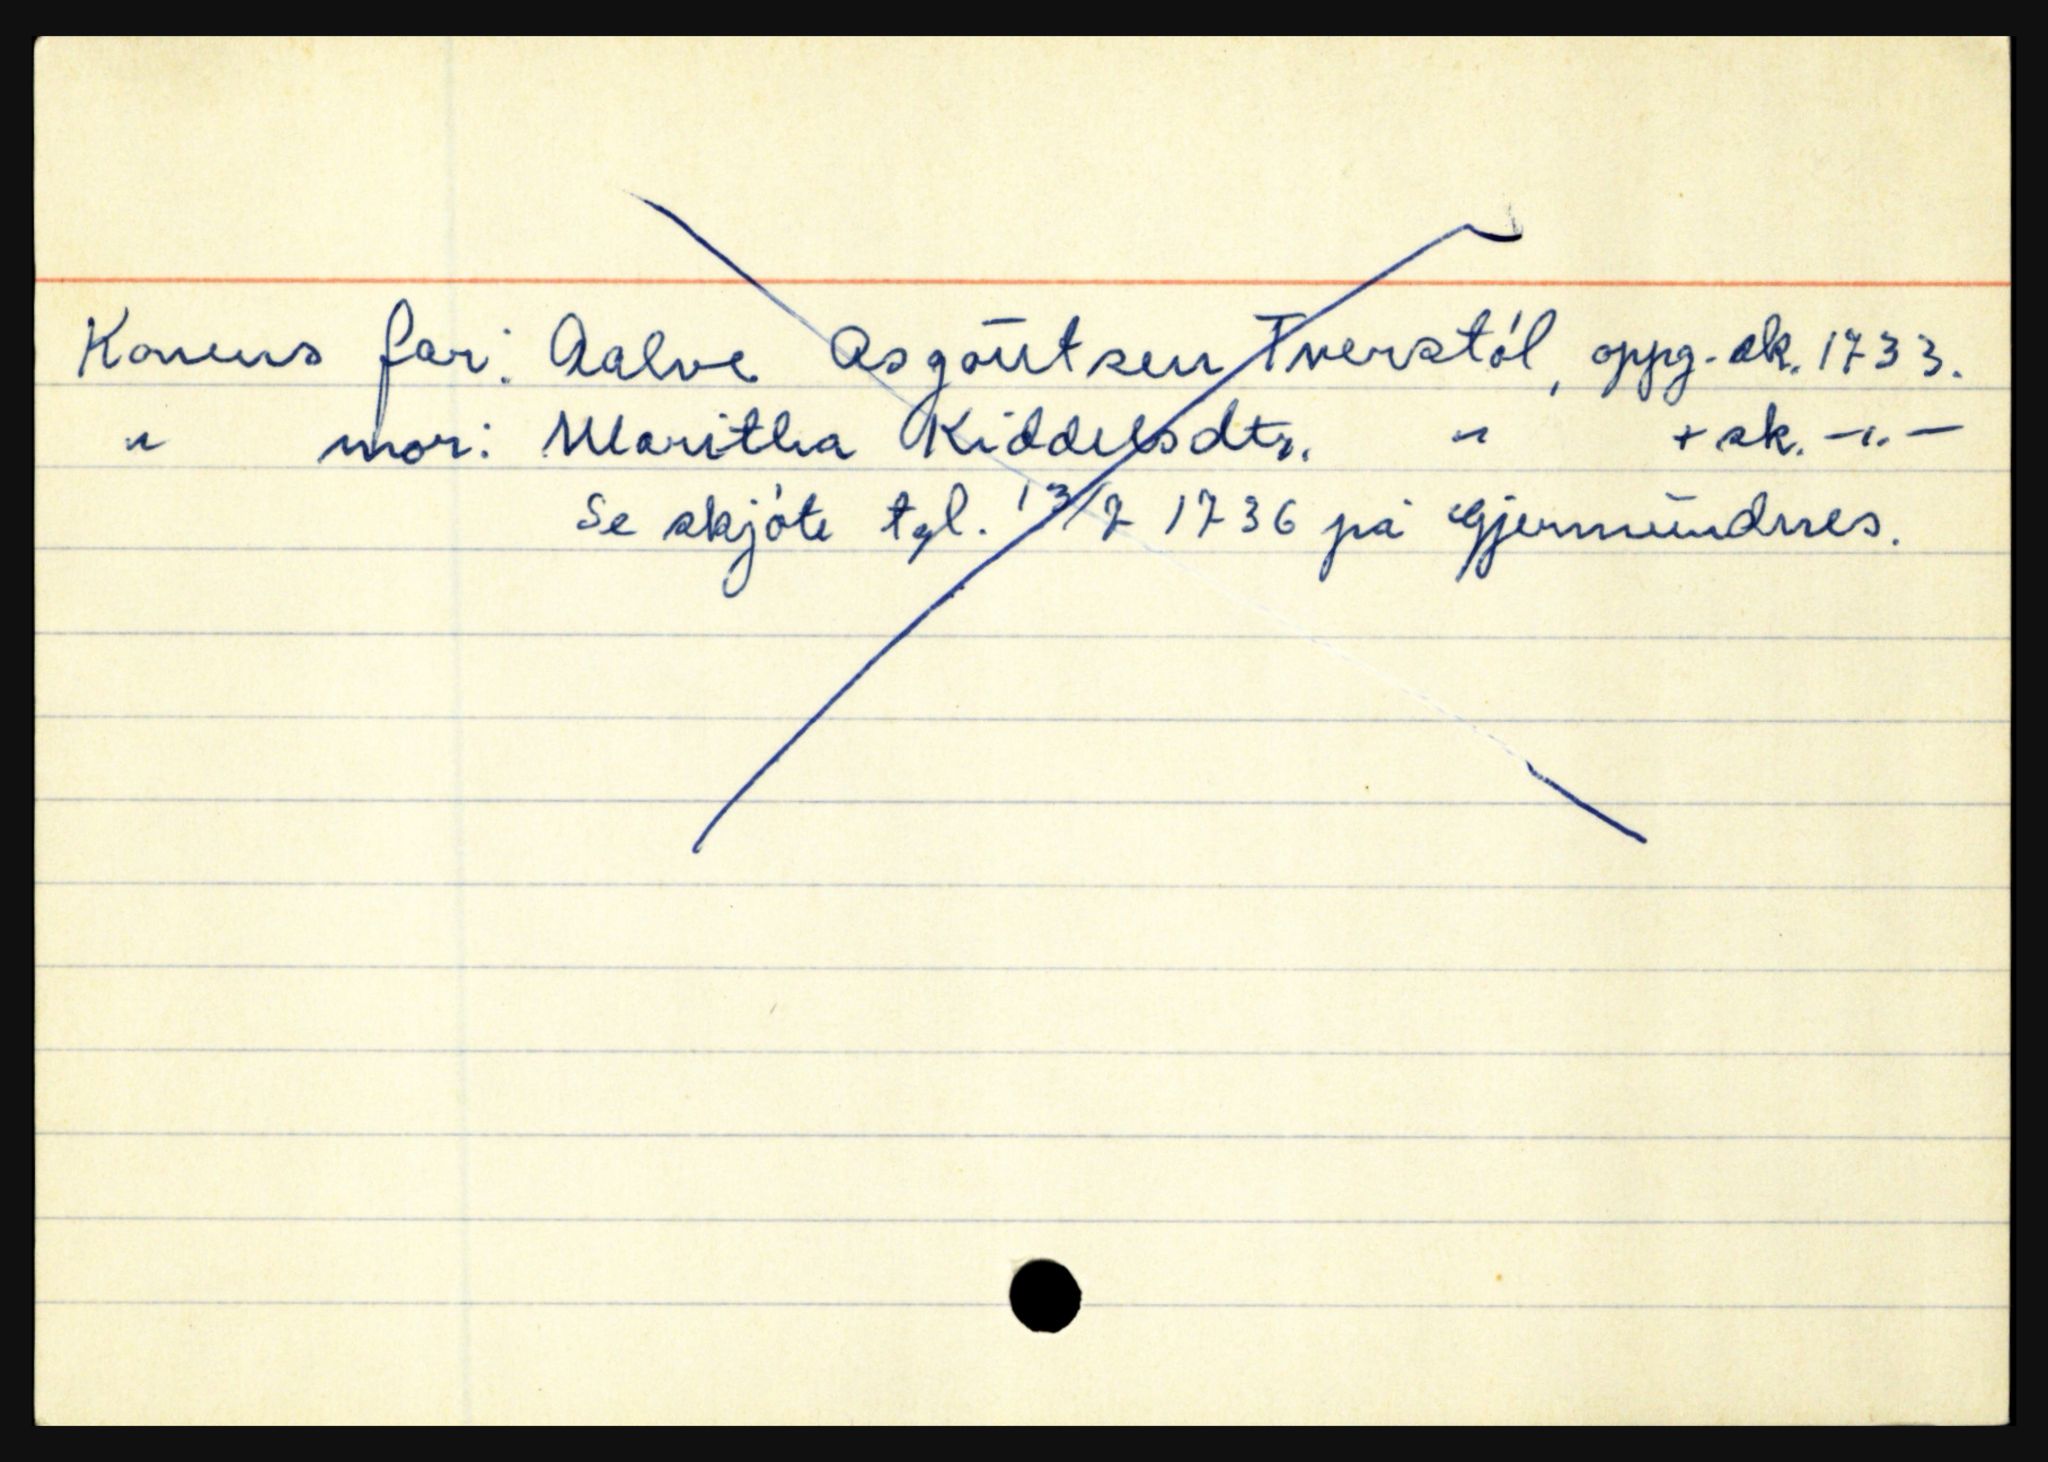 Konens far: Aalve Asgoutsen Tverstól, oppg. sk. 1733.
" mor: Maritha Kiddelsdtr. " + sk. -"-
Se skjóte tgl. 13/7 1736 på Gjermundnes.